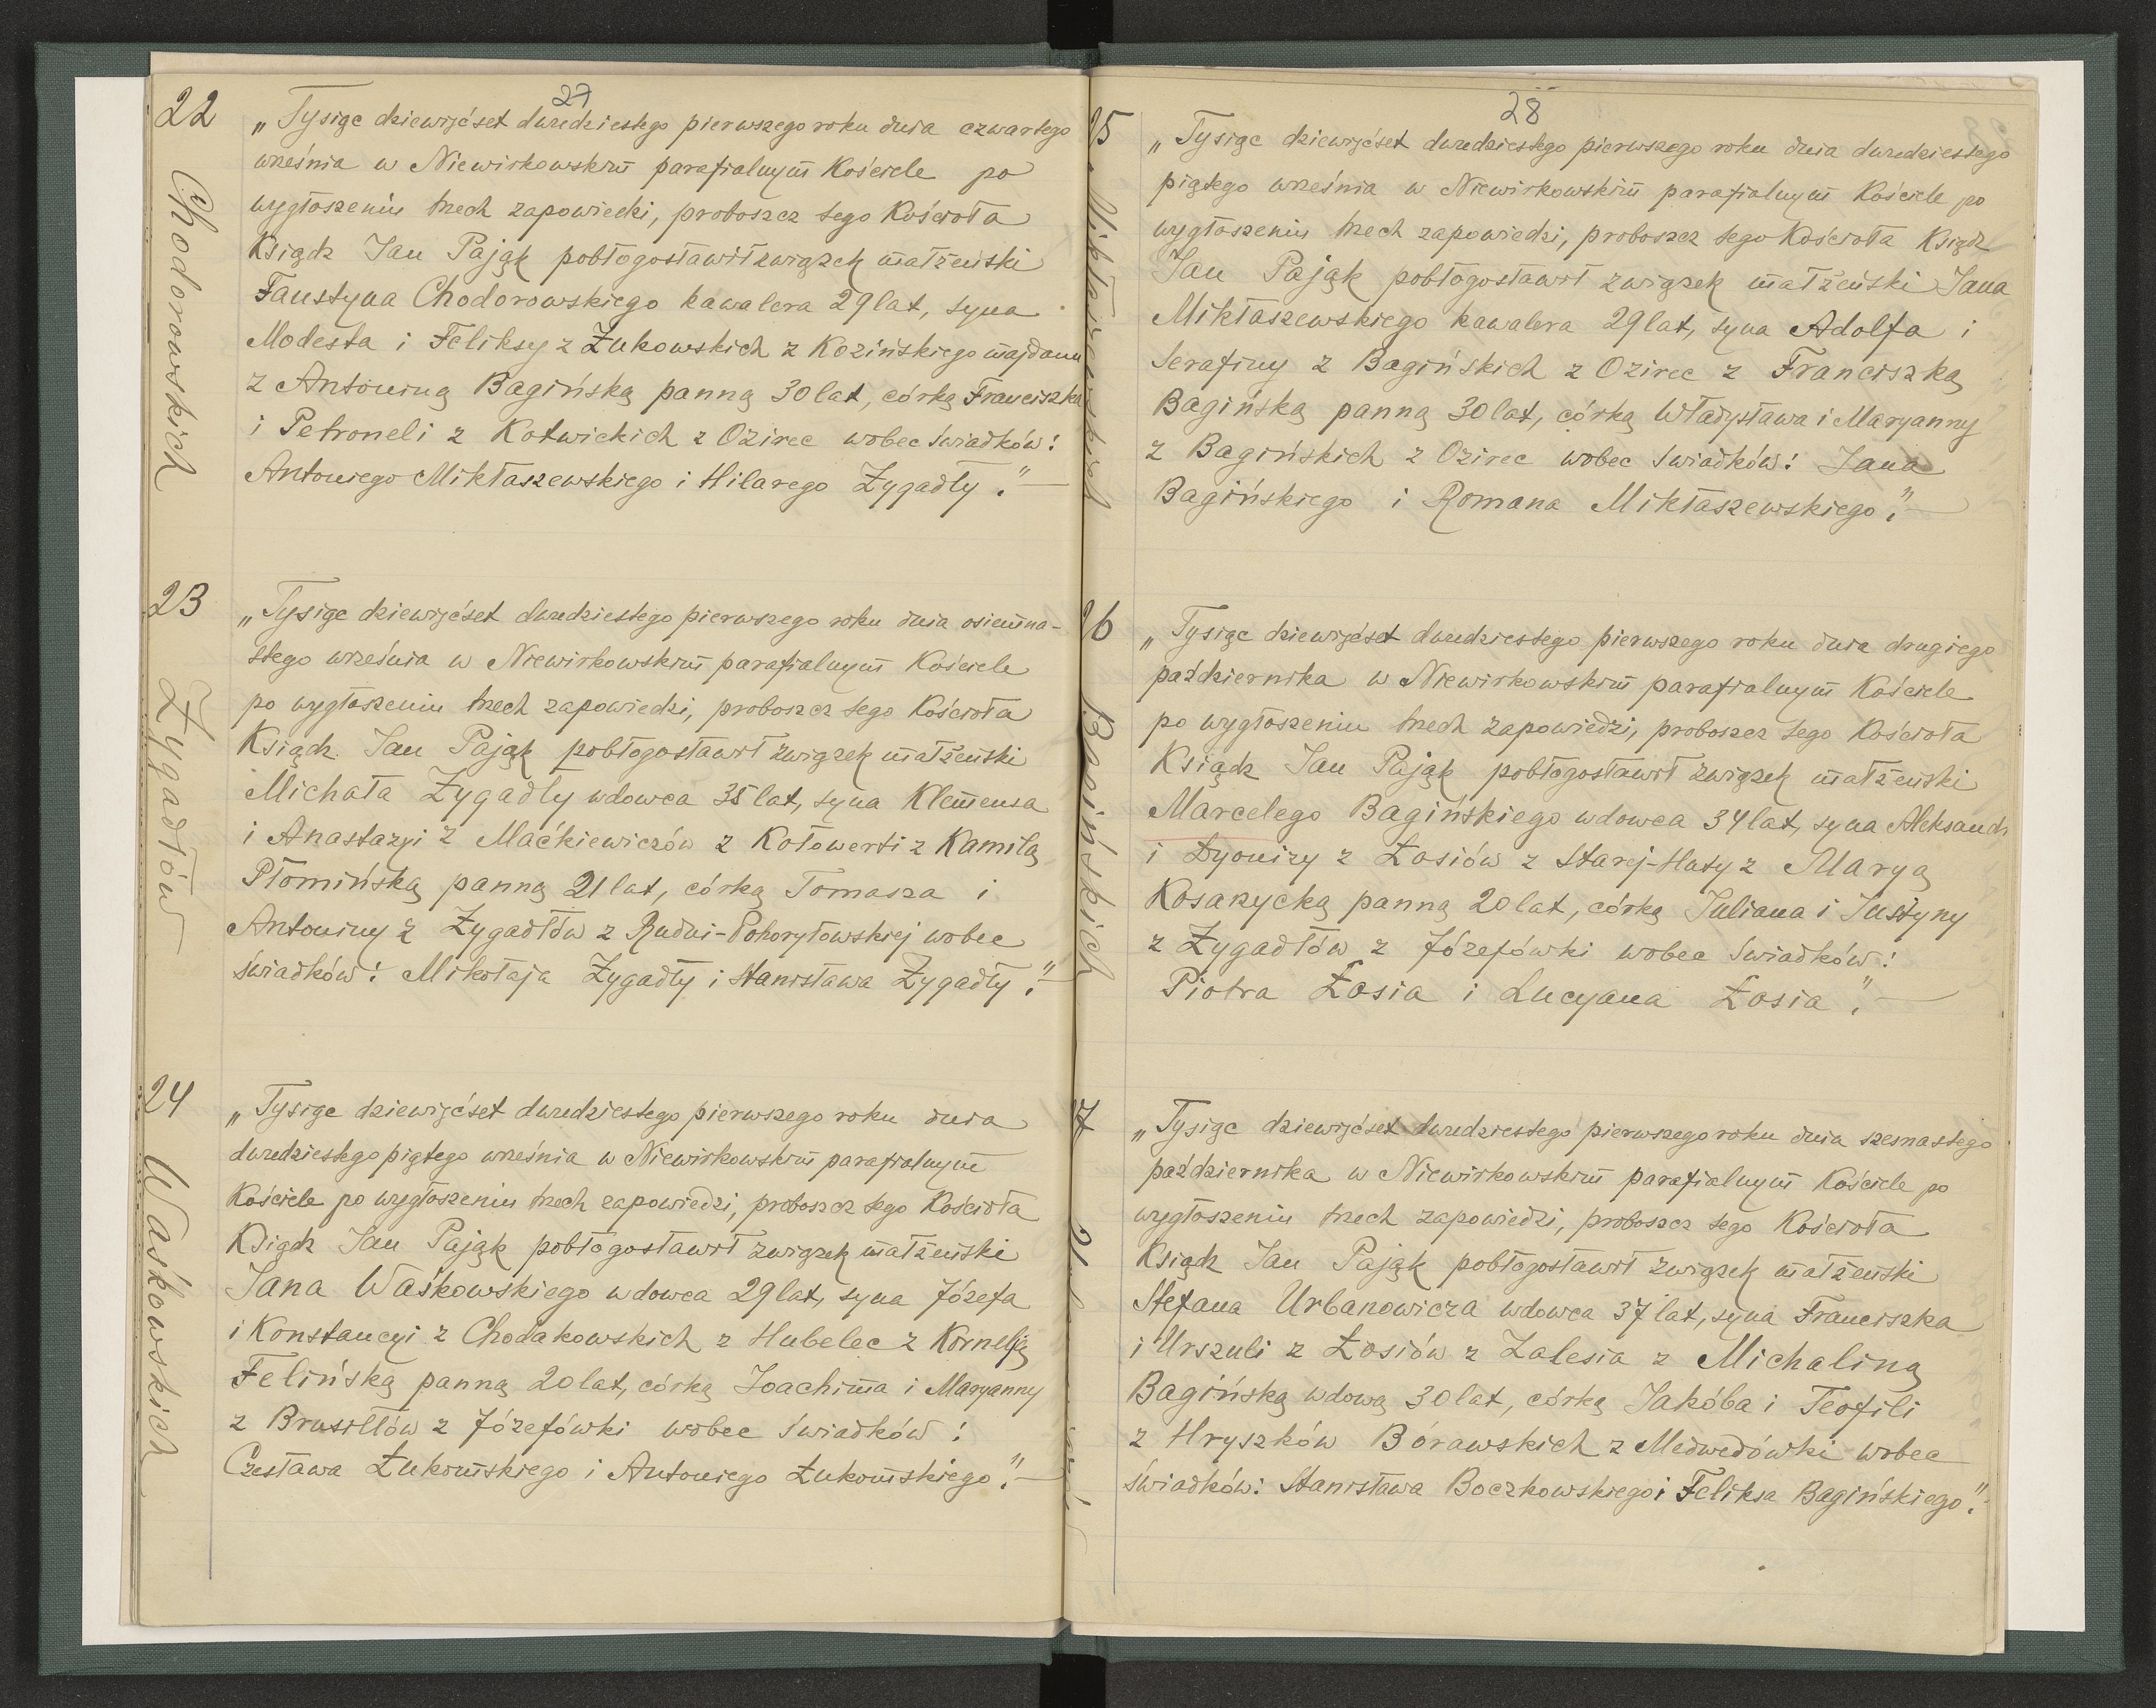 27
22
Chodorowskich
„Tysiąc dziewięćset dwudziestego pierwszego roku dnia czwartego
września w Niewirkowskim parafialnym Kościele po
wygłoszeniu trzech zapowiedzi, proboszcz tego Kościoła
Ksiądz Jan Pająk pobłogosławił związek małżeński
Faustyna Chodorowskiego kawalera 29 lat, syna
Modesta i Feliksy z Żukowskich z Kozińskiego majdanu
z Antoniną Bagińską panną 30 lat, córką Franciszka
i Petroneli z Kotwickich z Ozirec wobec świadków:
Antoniego Mikłaszewskiego i Hilarego Zygadły."—
23
Zygadłów
„Tysiąc dziewięćset dwudziestego pierwszego roku dnia osiemna-
stego września w Niewirkowskim parafialnym Kościele
po wygłoszeniu trzech zapowiedzi, proboszcz tego Kościoła
Ksiądz Jan Pająk pobłogosławił związek małżeński
Michała Zygadły wdowca 35 lat, syna Klemensa
i Anastazyi z Maćkiewiczów z Kołowerti z Kamilą
Płomińską panną 21 lat, córką Tomasza i
Antoniny z Zygadłów z Rudni-Pohoryłowskiej wobec
świadków: Mikołaja Zygadły i Stanisława Zygadły."—
24
Waśkowskich
„Tysiąc dziewięćset dwudziestego pierwszego roku dnia
dwudziestego piątego września w Niewirkowskim parafialnym
Kościele po wygłoszeniu trzech zapowiedzi, proboszcz tego Kościoła
Ksiądz Jan Pająk pobłogosławił związek małżeński
Jana Waśkowskiego wdowca 29 lat, syna Józefa
i Konstancyi z Chodakowskich z Hubelec z Kornelją
Felińską panną 20 lat, córką Joachima i Maryanny
z Brusiłłów z Józefówki wobec świadków:
Czesława Łukomskiego i Antoniego Łukomskiego."—
28
25
Mikłaszewskich
„Tysiąc dziewięćset dwudziestego pierwszego roku dnia dwudziestego
piątego września w Niewirkowskim parafialnym Kościele po
wygłoszeniu trzech zapowiedzi, proboszcz tego Kościoła Ksiądz
Jan Pająk pobłogosławił związek małżeński Jana
Mikłaszewskiego kawalera 29 lat, syna Adolfa i
Serafiny z Bagińskich z Ozirec z Franciszką
Bagińską panną 30 lat, córką Władysława i Maryanny
z Bagińskich z Ozirec wobec świadków: Jana
Bagińskiego i Romana Mikłaszewskiego."—
26
Bagińskich
„Tysiąc dziewięćset dwudziestego pierwszego roku dnia drugiego
października w Niewirkowskim parafialnym Kościele
po wygłoszeniu trzech zapowiedzi, proboszcz tego Kościoła
Ksiądz Jan Pająk pobłogosławił związek małżeński
Marcelego Bagińskiego wdowca 34 lat, syna Aleksandr
i Dyonizy z Łosiów z Starej-Huty z Maryą
Kosarzycką panną 20 lat, córką Juliana i Justyny
z Zygadłów z Józefówki wobec świadków:
Piotra Łosia i Lucyana Łosia."—
7
„Tysiąc dziewięćset dwudziestego pierwszego roku dnia szesnastego
października w Niewirkowskim parafialnym Kościele po
wygłoszeniu trzech zapowiedzi, proboszcz tego Kościoła
Ksiądz Jan Pająk pobłogosławił związek małżeński
Stefana Urbanowicza wdowca 37 lat, syna Franciszka
i Urszuli z Łosiów z Zalesia z Michaliną
Bagińską wdową 30 lat, córką Jakóba i Teofili
z Hryszków Bórawskich z Medwedówki wobec
świadków: Stanisława Boczkowskiego i Feliksa Bagińskiego."